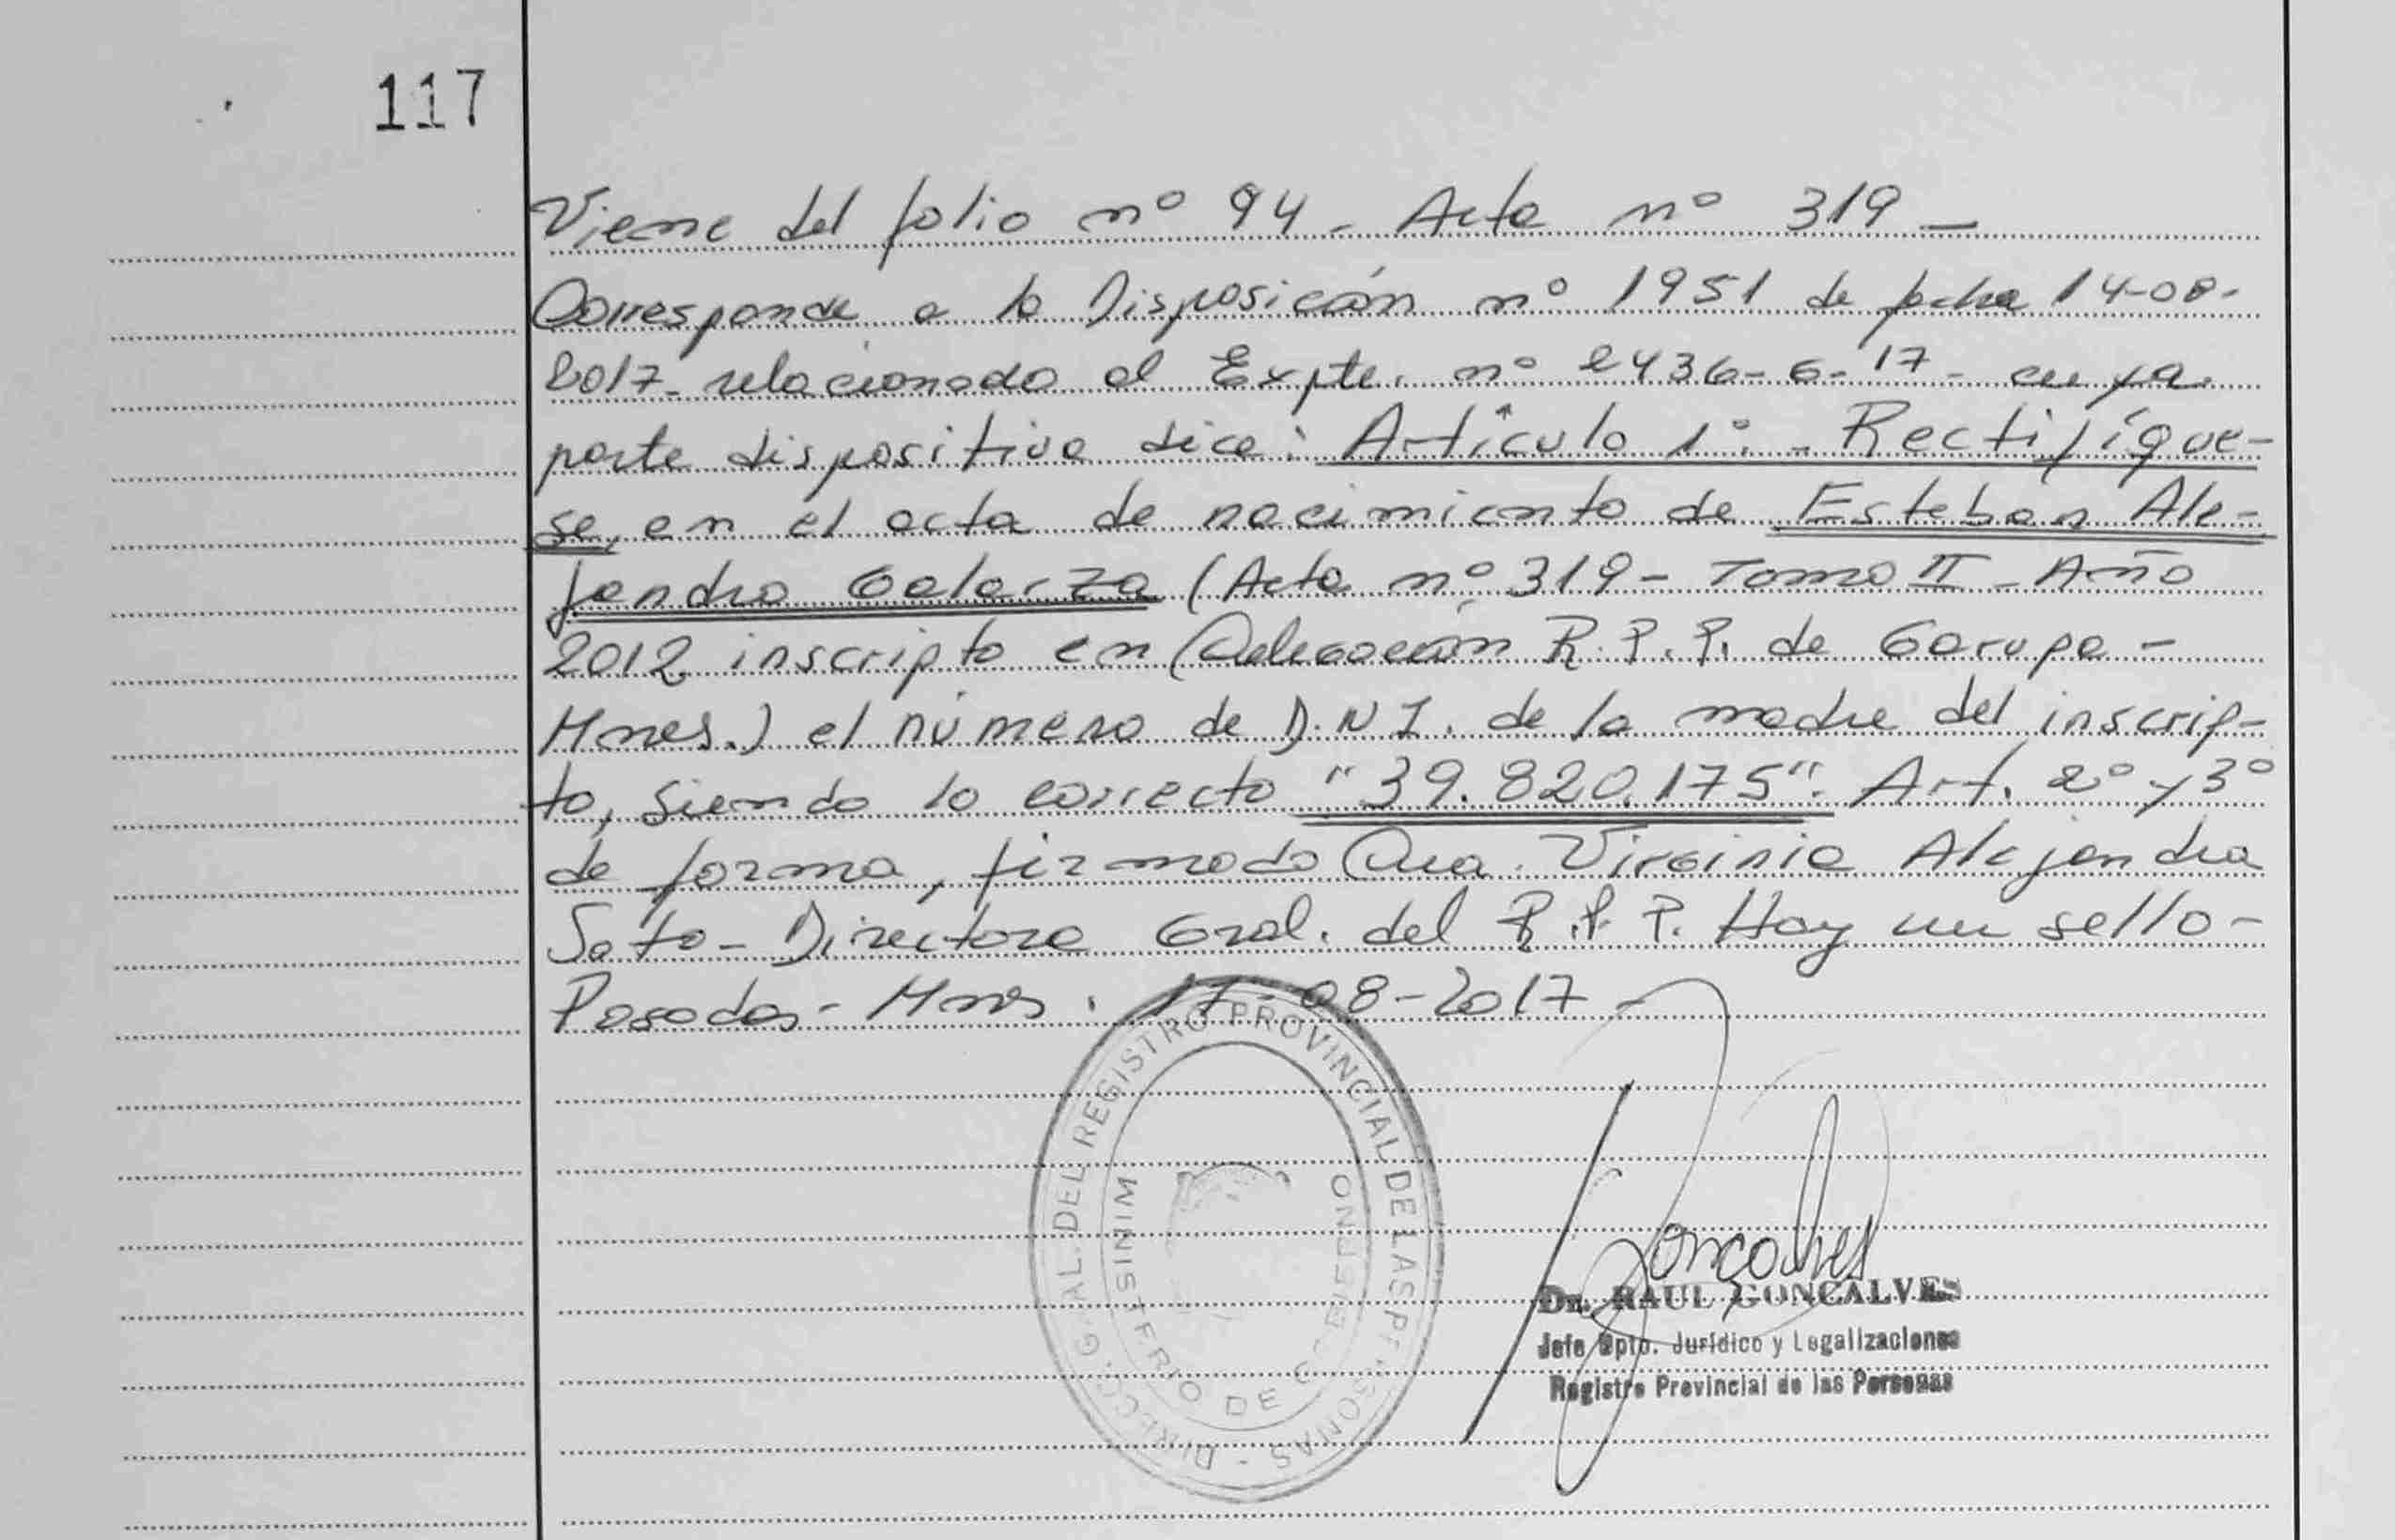 117
Viene del folio nº 94 - Acta nº 319 -
Corresponde a la Disposición nº 1951 de fecha 14-08-
2017- relacionado al Expte. nº 2436-G-17- cuya
parte dispositiva dice: Artículo 1º.- Rectifíque-
se, en el acta de nacimiento de Esteban Ale-
jandro Galarza (Acta nº 319 - Tomo II - Año
2012 inscripto en Delegación R.P.P. de Garupa -
Mnes.) el número de D.N.I. de la madre del inscrip-
to, siendo lo correcto "39.820.175". Art. 2º y 3º
de forma, firmado Dra. Virginia Alejandra
Soto - Directora Gral. del R.P.P. Hay un sello -
Posadas - Mnes. 17-08-2017 -
DIRECC. GRAL. DEL REGISTRO PROVINCIAL DE LAS PERSONAS -
MINISTERIO DE GOBIERNO
Goncalves
Dr. RAUL GONCALVES
Jefe Dpto. Jurídico y Legalizaciones
Registro Provincial de las Personas